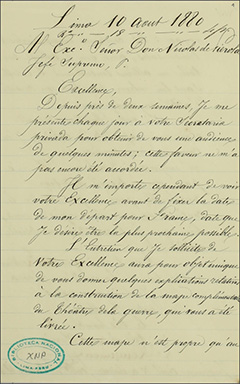 Lima 10 aout 1880
A Son Exc.ce Señor Don Nicolas de Piérola
Jefe Supremo, &
Excellence,
Depuis près de deux semaines, Je me
présente chaque jour à votre Secretaria
privada pour obtenir de vous une audience
de quelques minutes; cette faveur ne m'a
pas encore été accordée.
Il m'importe cependant de voir
votre Excellence, avant de fixer la date
de mon départ pour France, date que
Je désire être la plus prochaine possible.
L'Entretien que Je sollicite de
Votre Excellence aura pour objet unique
de vous donner quelques explications relatives
à la construction de la mape complémentaire
du théâtre de la guerre, que vous a été
livrée.
Cette mape n'est propre qu'au
BIBLIOTECA NACIONAL
XNP
LIMA-PERU